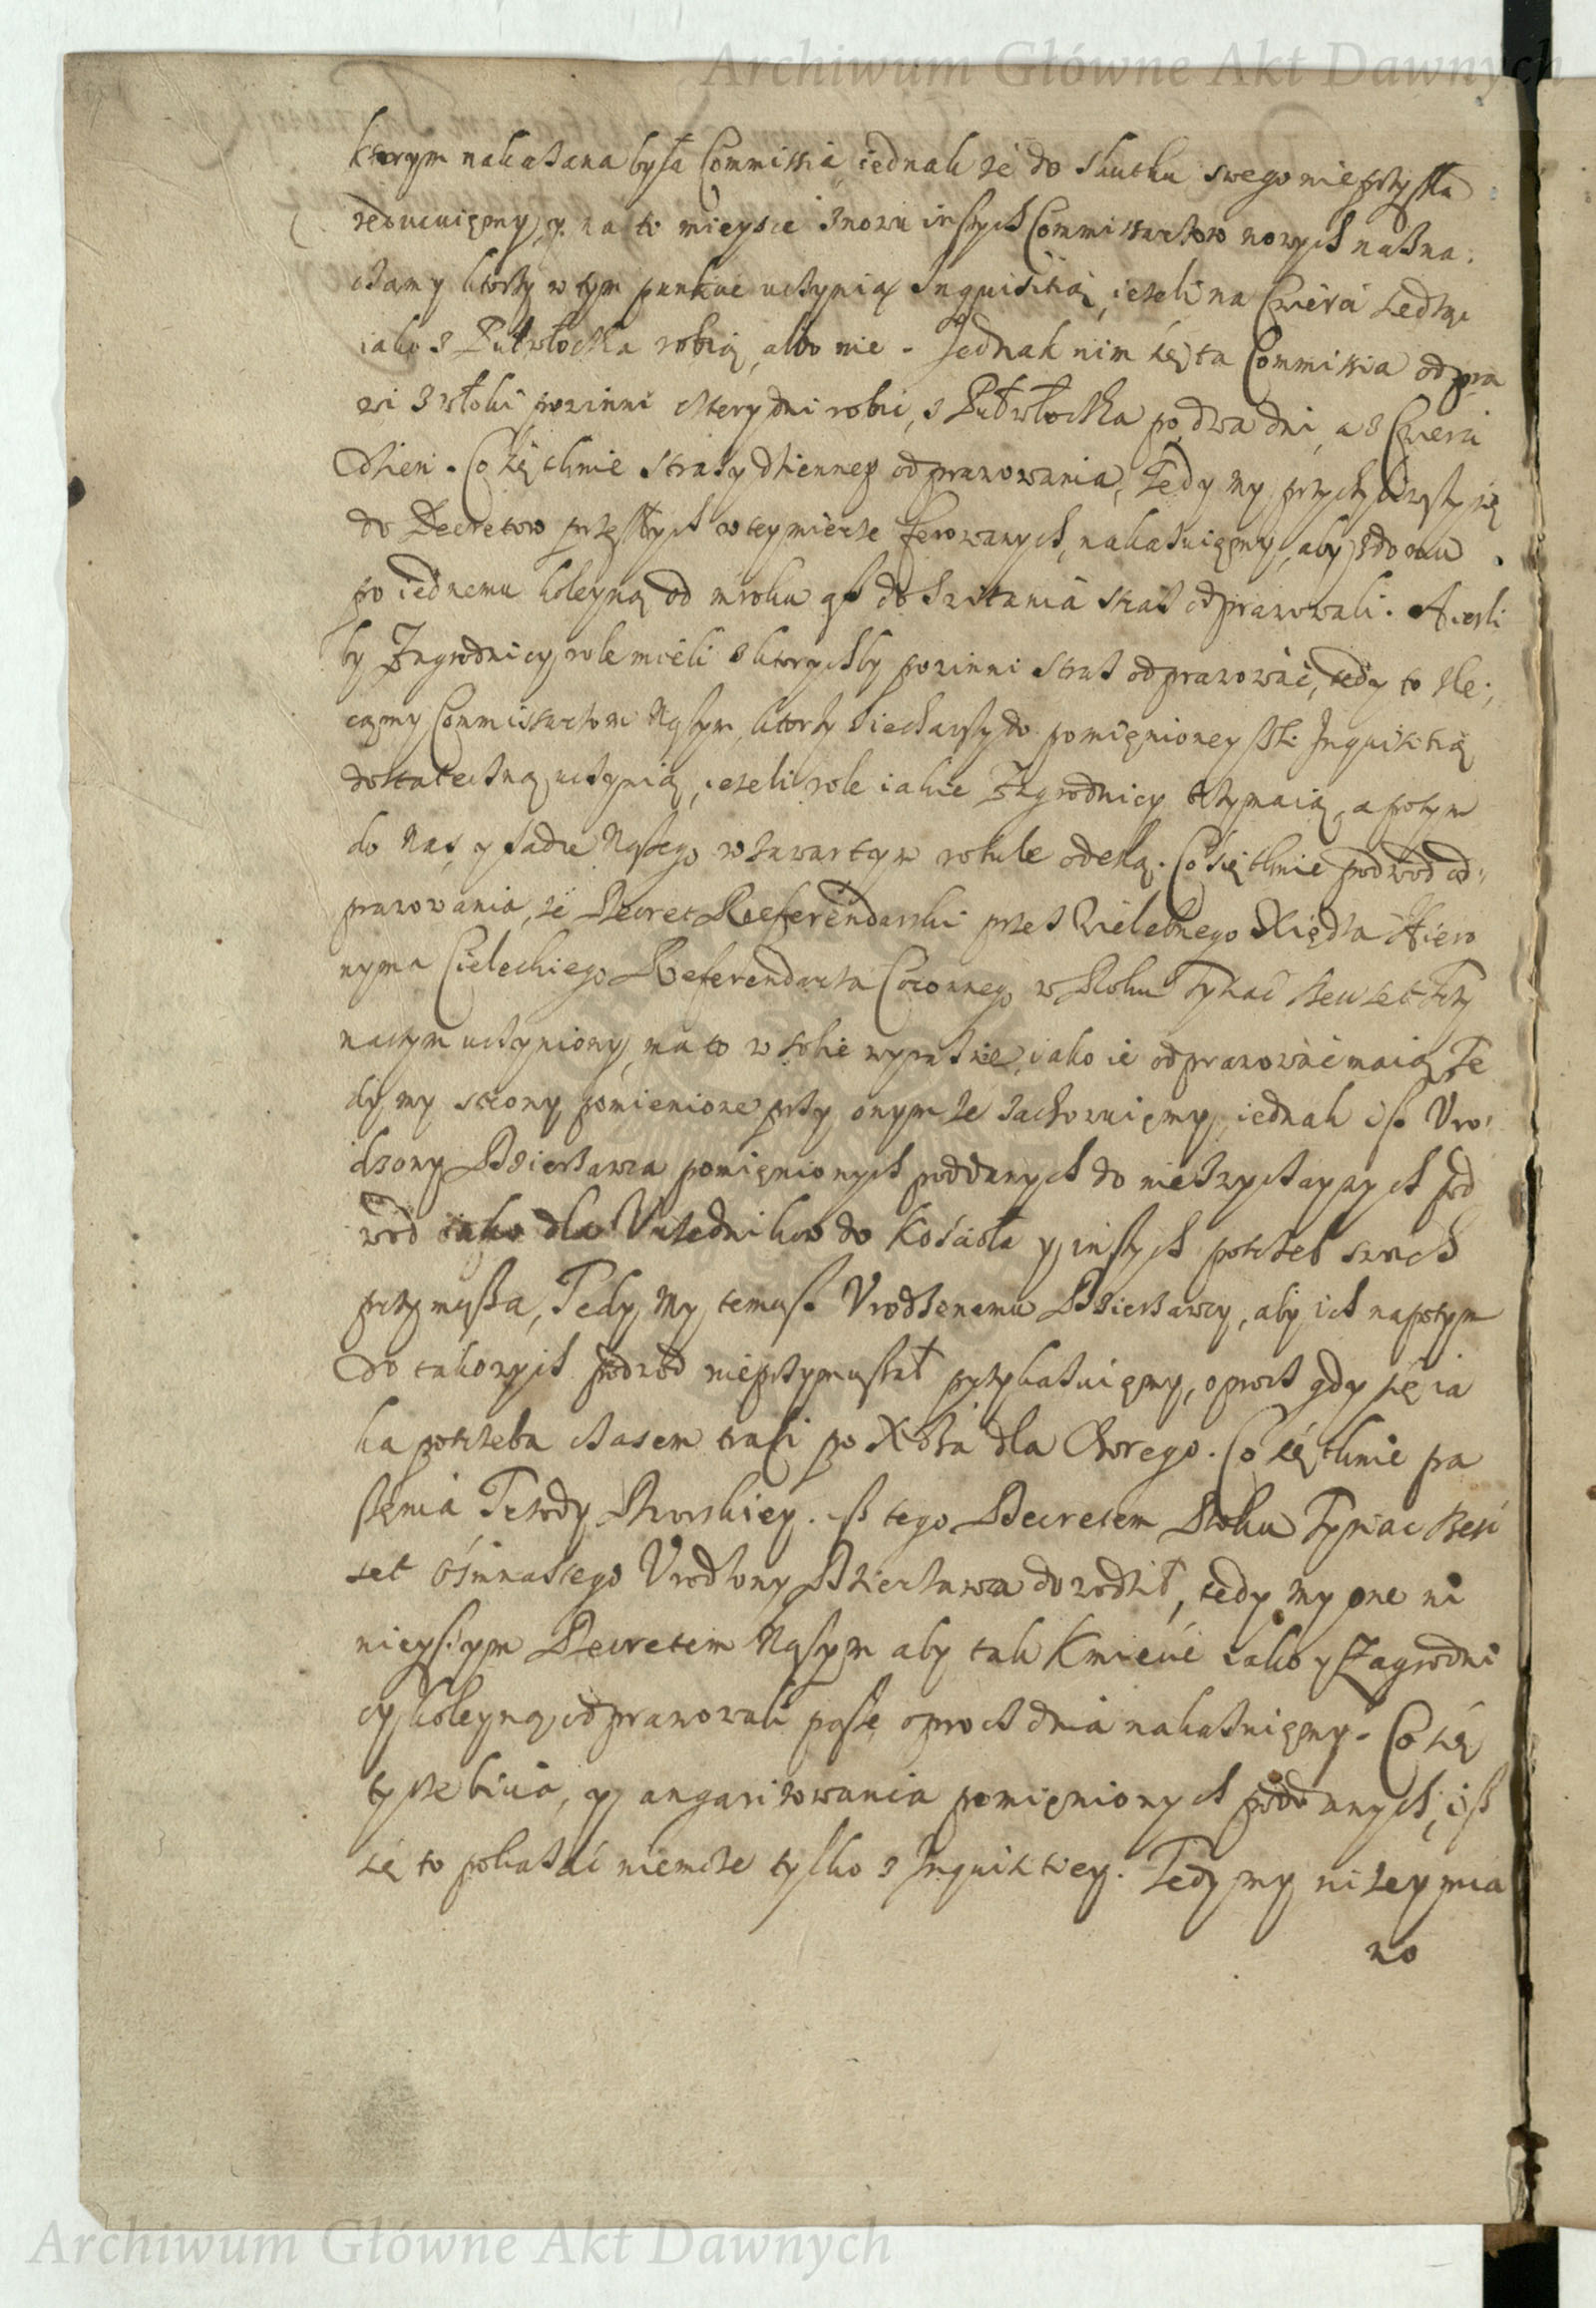 Archiwum Główne Akt Dawnych
ktorym nakazana była Commissia iednak że do skutku swego nie przyszła
reducuięmy, y na to mieysce znowu inszych Commissarzow nowych nazna:
czamy ktorzy w tym punkcie uczynią Inquisitią, ieżeli na Cwierci siedząc
iako z Pułwłoczka robią, albo nie. Jednak nim się ta Commissia odpra
wi z włoki powinni cztery dni robić, z Pułwłoczka po dwa dni, a z Cwierci
dzien. Co się tknie straży dzienney odprawowania, Tedy my przychyliwszy się
do Decretow przeszłych w tey mierze ferowanych, nakazuięmy, aby z domu
po iednemu koleyną od mroku asz do switania straż odprawowali. A iesli
by Zagrodnicy role mieli z ktorychby powinni straż odprawować, tedy to zle:
camy Commissarzom Naszym, ktorzy ziechawszy do pomięnioney Wsi Inquisitią
dostateczną uczynią, ieżeli role iakie Zagrodnicy trzymaią, a potym
do Nas y sądu Naszego w zawartym rotule odeslą. Co się tknie podwod od:
prawowania, że Decret Referendarski przez Wielebnego Xiędza Hiero
nyma Cieleckiego Referendarza Coronnego w Roku Tysiąc szesc set Trzy
nastym uczyniony, ma to w sobie wyraznie, iako ie odprawować maią, Te
dy my strony pomienione przy onym że zachowuięmy, iednak isz Uro:
dzony Dzierżawca pomięnionych poddanych do niezwyczaynych pod
wod iako dla Urzednikow do Kościoła y inszych potrzeb swoich
przymusza, Tedy my temusz Urodzonemu Dzierżawcy, aby ich napotym
do takowych podwod nieprzymuszał przykazuięmy, oprocz gdy się ia
ka potrzeba czasem trafi po Xdza dla Chorego. Co się tknie pa
szęnia Trzody Dworskiey. isz tego Decretem Roku Tysiac szesc
set osmnastego Urodzony Dzierżawca dowodził, tedy my one ni
nieyszym Decretem Naszym aby tak Kmiecie iako y Zagrodni
cy koleyną odprawowali paszę oprocz dnia nakazuięmy. Co się
tycze bicia, y angarizowania pomięnionych poddanych, isz
się to pokazać niemoże tylko z Inquisitiey. Tedy my niżeymia
no
Archiwum Główne Akt Dawnych